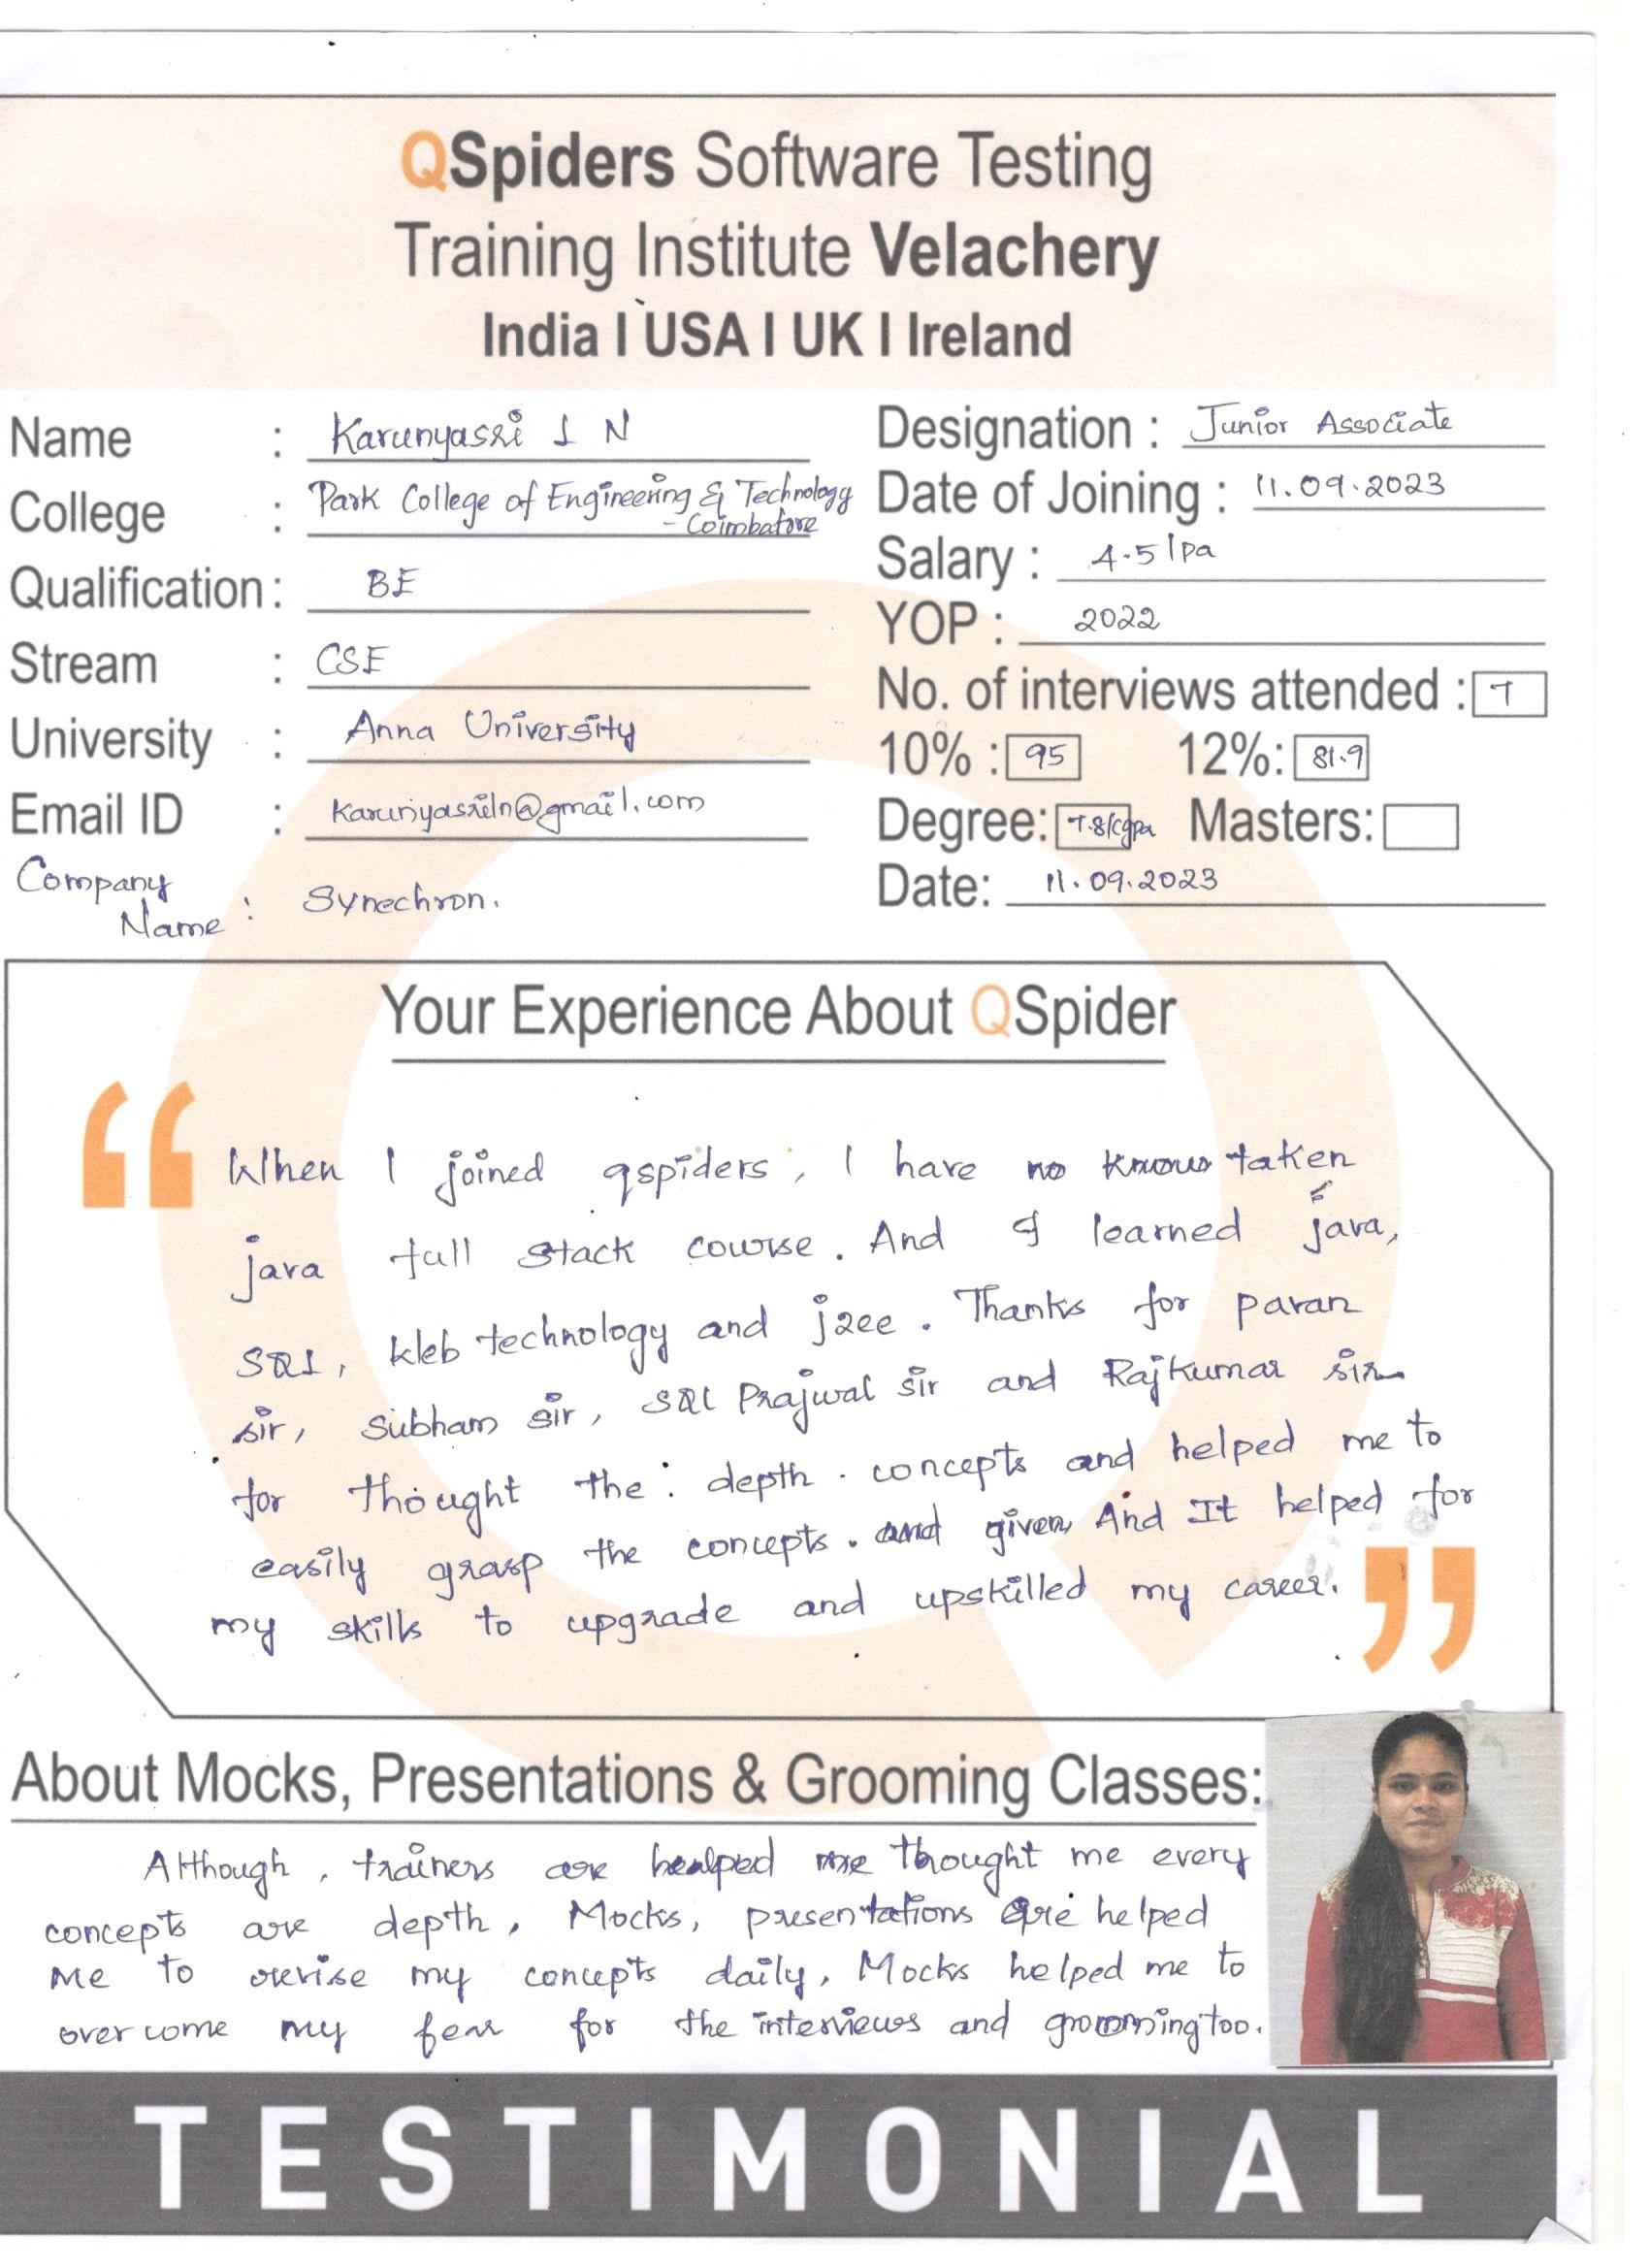 QSpiders Software Testing
Training Institute Velachery
India | USA | UK | Ireland
Name : Karunyasri L N
College : Park College of Engineering & Technology
- Coimbatore
Qualification : BE
Stream : CSE
University : Anna University
Email ID : karunyasriln@gmail.com
Company
Name : Synechron.
Designation : Junior Associate
Date of Joining : 11.09.2023
Salary : 4.5 lpa
YOP : 2022
No. of interviews attended : 7
10% : 95 12%: 81.9
Degree: 7.8/cgpa Masters:
Date: 11.09.2023
Your Experience About QSpider
When I joined qspiders, I have no know taken
java full stack course. And I learned java,
SQL, Web technology and j2ee. Thanks for pavan
sir, Subham sir, SQL Prajwal sir and Rajkumar sir
for thought the depth concepts and helped me to
easily grasp the concepts. and given And It helped for
my skills to upgrade and upskilled my career.
About Mocks, Presentations & Grooming Classes:
Although, trainers are healped me thought me every
concepts are depth, Mocks, presentations are helped
me to revise my concepts daily, Mocks helped me to
over come my fear for the interviews and grooming too.
TESTIMONIAL